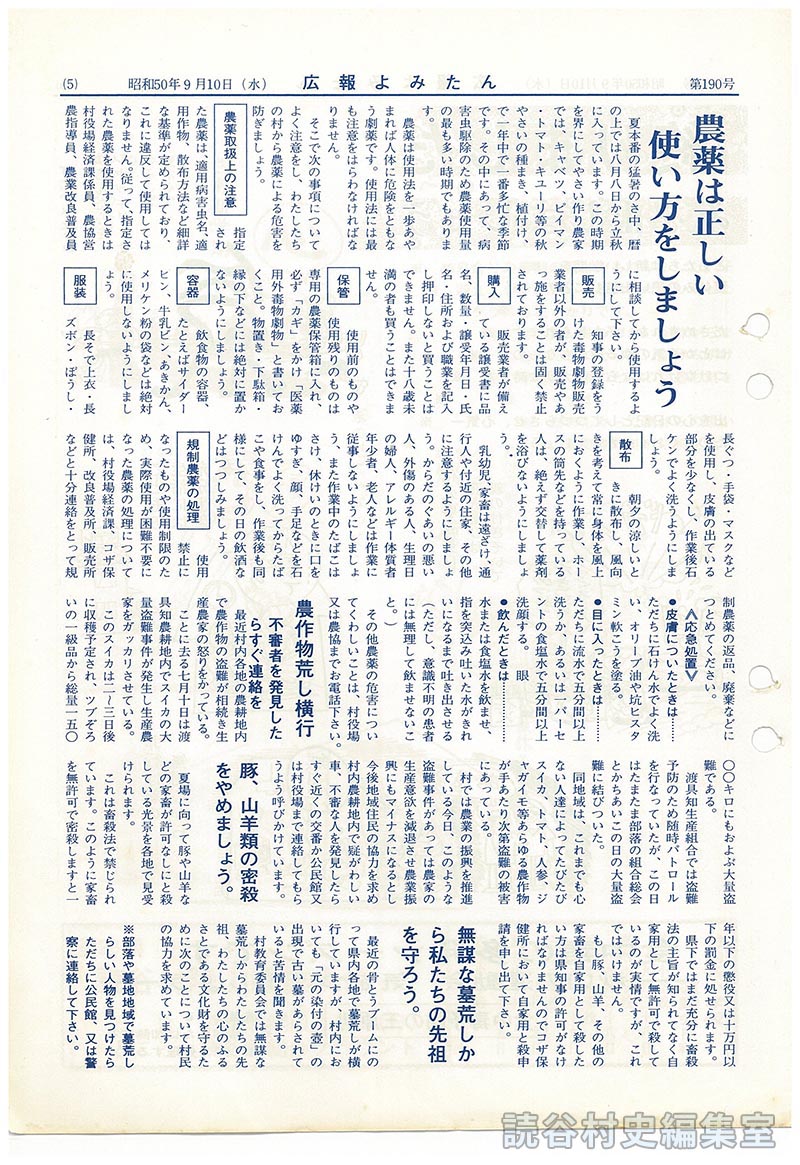 (5)
昭和50年9月10日(水)
広報よみたん
第190号
農薬は正しい
使い方をしましょう
夏本番の猛暑のさ中、暦
の上では八月八日から立秋
に入っています。この時期
を界にしてやさい作り農家
では、キャベツ、ピイマン
・トマト・キユーリ等の秋
やさいの種まき、植付け、
で一年中で一番多忙な季節
です。その中にあって、病
害虫駆除のため農薬使用量
の最も多い時期でもありま
す。
農薬は使用法を一歩あや
まれば人体に危険をともな
う劇薬です。使用法には最
も注意をはらわなければな
りません。
そこで次の事項について
よく注意をし、わたしたち
の村から農薬による危害を
防ぎましょう。
農薬取扱上の注意
指定
され
た農薬は、適用病害虫名、適
用作物、散布方法など細詳
な基準が定められており、
これに違反して使用しては
なりません。従って、指定さ
れた農薬を使用するときは
村役場経済課係員、農協営
農指導員、農業改良普及員
に相談してから使用するよ
うにして下さい。
販売
知事の登録をう
けた毒物劇物販売
業者以外の者が、販売やあ
っ施をすることは固く禁止
されております。
購入
販売業者が備え
ている譲受書に品
名、数量・譲受年月日・氏
名・住所および職業を記入
し押印しないと買うことは
できません。また十八歳未
満の者も買うことはできま
せん。
保管
使用前のものや
使用残りのものは
専用の農薬保管箱に入れ、
必ず「カギ」をかけ「医薬
用外毒物劇物」と書いてお
くこと。物置き・下駄箱・
縁の下などには絶対に置か
ないようにしましょう。
容器
飲食物の容器、
たとえばサイダー
ビン、牛乳ビン、あきかん、
メリケン粉の袋などは絶対
に使用しないようにしまし
ょう。
服装
長そで上衣・長
ズボン・ぼうし・
長ぐつ・手袋・マスクなど
を使用し、皮膚の出ている
部分を少なくし、作業後石
ケンでよく洗うようにしま
しょう。
散布
朝夕の涼しいと
きに散布し、風向
きを考えて常に身体を風上
におくように作業し、ホー
スの筒先などを持っている
人は、絶えず交替して薬剤
を浴びないようにしましょ
う。
乳幼児、家畜は遠ざけ、通
行人や付近の住家、その他
に注意するようにしましょ
う。からだのぐあいの悪い
人、外傷のある人、生理日
の婦人、アレルギー体質者
年少者、老人などは作業に
従事しないようにしましょ
う、また作業中のたばこは
さけ、休けいのときに口を
ゆすぎ、顔、手足などを石
けんでよく洗ってからたば
こや食事をし、作業後も同
様にして、その日の飲酒な
どはつつしみましょう。
規制農薬の処理
使用
禁止に
なったものや使用制限のた
め、実際使用が困難不要に
なった農薬の処理について
は、村役場経済課、コザ保
健所、改良普及所、販売所
などと十分連絡をとって規
制農薬の返品、廃棄などに
つとめてください。
≪応急処置≫
●皮膚についたときは……
ただちに石けん水でよく洗
い、オリーブ油や坑ヒスタ
ミン軟こうを塗る。
●目に入ったときは………
ただちに流水で五分間以上
洗うか、あるいは一パーセ
ントの食塩水で五分間以上
洗顔する。 眼
●飲んだときは……………
水または食塩水を飲ませ、
指を突込み吐いた水がきれ
いになるまで吐き出させる
（ただし、意識不明の患者
には無理して飲ませないこ
と。）
その他農薬の危害につい
てくわしいことは、村役場
又は農協までお電話下さい。
農作物荒し横行
不審者を発見した
らすぐ連絡を
最近村内各地の農耕地内
で農作物の盗難が相続き生
産農家の怒りをかっている。
ことに去る七月十日は渡
具知農耕地内でスイカの大
量盗難事件が発生し生産農
家をガッカリさせている。
このスイカは二～三日後
に収穫予定され、ツブぞろ
いの一級品から総量一五〇
〇〇キロにもおよぶ大量盗
難である。
渡具知生産組合では盗難
予防のため随時パトロール
を行なっていたが、この日
はたまたま部落の組合総会
とかちあいこの日の大量盗
難に結びついた。
同地域は、これまでも心
ない人達によってたびたび
スイカ、トマト、人参、ジ
ャガイモ等あらゆる農作物
が手あたり次第盗難の被害
にあっている。
村では農業の振興を推進
している今日、このような
盗難事件があっては農家の
生産意欲を減退させ農業振
興にもマイナスになるとし
今後地域住民の協力を求め
村内農耕地内で疑がわしい
車、不審な人を発見したら
すぐ近くの交番か公民館又
は村役場まで連絡してもら
うよう呼びかけています。
豚、山羊類の密殺
をやめましょう。
夏場に向って豚や山羊な
どの家畜が許可なしにと殺
している光景を各地で見受
けられます。
これは畜殺法で禁じられ
ています。このように家畜
を無許可で密殺しますと一
年以下の懲役又は十万円以
下の罰金に処せられます。
県下ではまだ充分に畜殺
法の主旨が知られてなく自
家用として無許可で殺して
いるのが実情ですが、これ
ではいけません。
もし豚、山羊、その他の
家畜を自家用として殺した
い方は県知事の許可がなけ
ればなりませんのでコザ保
健所において自家用と殺申
請を申し出て下さい。
無謀な墓荒しか
ら私たちの先祖
を守ろう。
最近の骨とうブームにの
って県内各地で墓荒しが横
行していますが、村内にお
いても「元の染付の壺」の
出現で古い墓があらされて
いると苦情を聞きます。
村教育委員会では無謀な
墓荒しからわたしたちの先
祖、わたしたちの心のふる
さとである文化財を守るた
めに次のことについて村民
の協力を求めています。
※部落や墓地地域で墓荒し
らしい人物を見つけたら
ただちに公民館、又は警
察に連絡して下さい。
読谷村史編集室